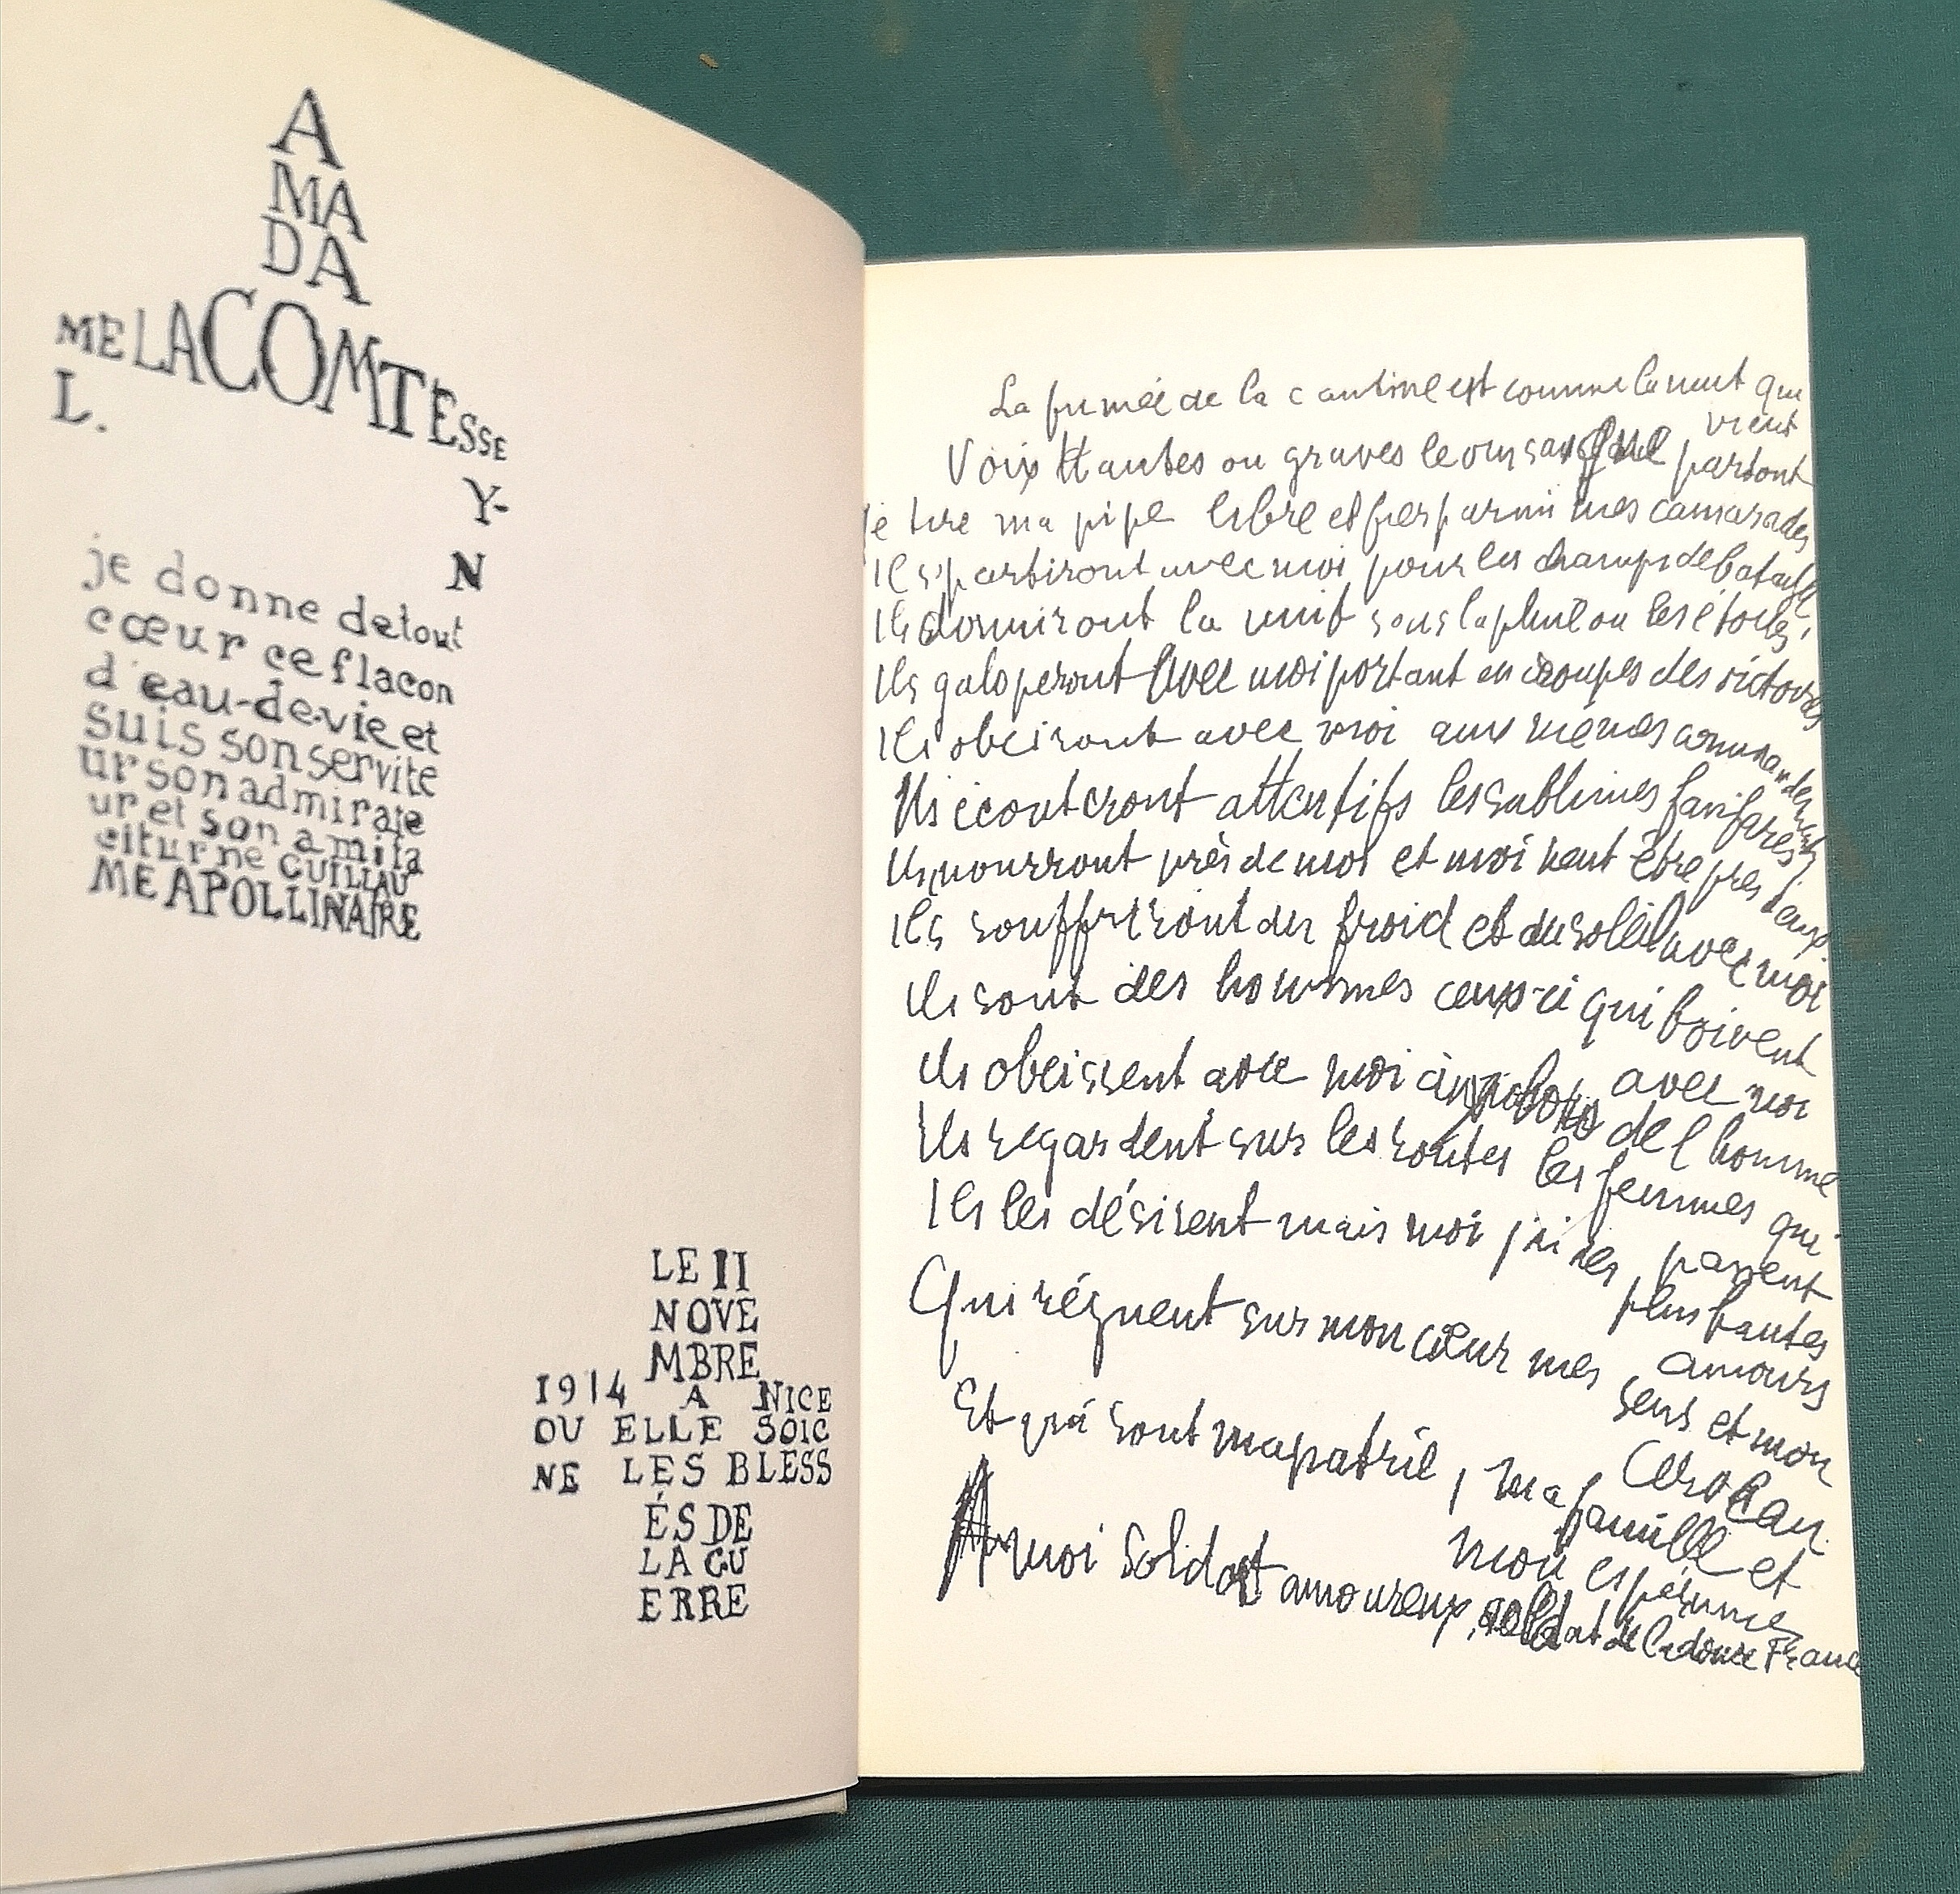 A
MA
DA
ME LA COMTESSE
L.
Y-
N
je donne detout
cœur ce flacon
d'eau-de-vie et
suis son servite
ur son admirate
ur et son ami ta
citurne GUILLAU
ME APOLLINAIRE
LE 11
NOVE
MBRE
1914 A NICE
OU ELLE SOIG
NE LES BLESS
ÉS DE
LA GU
ERRE
La fumée de la cantine est comme la nuit qui
vient
Voix Hautes ou graves le vin saigne partout
Je tire ma pipe libre et fier parmi mes camarades
Ils partiront avec moi pour les champs de bataille
Ils dormiront la nuit sous la pluie ou les étoiles
Ils galoperont avec moi portant en croupes des victoires
Ils obeiront avec moi aux mêmes commandements
Ils écouteront attentifs les sublimes fanfares
Ils mourront près de moi et moi peut être près d'eux
Ils souffriront du froid et du soleil avec moi
Ils sont des hommes ceux-ci qui boivent
avec moi
Ils obeissent avec moi aux lois de l homme
Ils regardent sur les routes les femmes qui
passent
Ils les désirent mais moi j'ai des plus hautes
amours
Qui règnent sur mon cœur mes sens et mon
cerveau
Et qui sont ma patrie, ma famille et
mon espérance
A moi soldat amoureux, soldat de la douce France